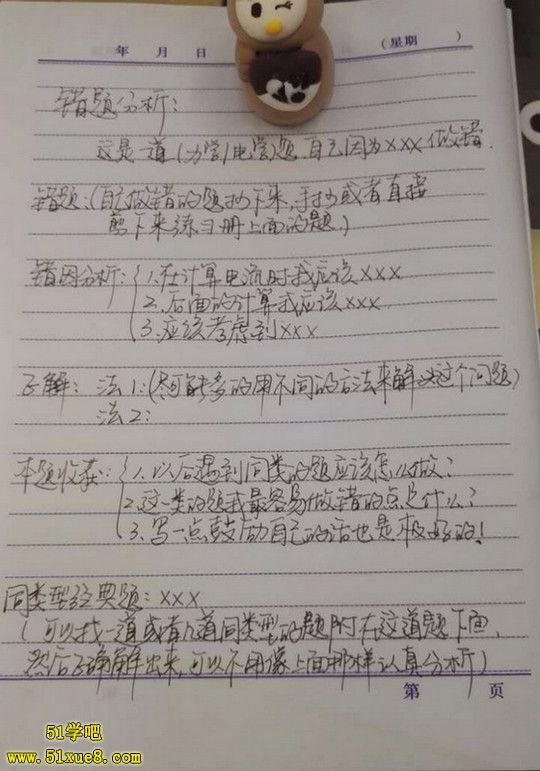 年 月 日 (星期 )
错题分析:
这是一道(力学/电学)题,自己因为xxx做错.
错题:(自己做错的题抄下来,手抄或者直接
剪下来练习册上面的题.)
错因分析:{1.在计算电流时我应该xxx
2.后面的计算我应该xxx
3.应该考虑到xxx
正解: 法1:(尽可能多的用不同的方法来解决这个问题)
法2:
本题收获:{1.以后遇到同类的题应该怎么做?
2.这一类的题我最容易做错的点是什么?
3.写一点鼓励自己的话也是极好的!
同类型经典题: xxx
(可以找一道或者几道同类型的题附在这道题下面,
然后正确解出来,可以不用像上面那样认真分析)
第 页
51学吧
www.51xue8.com